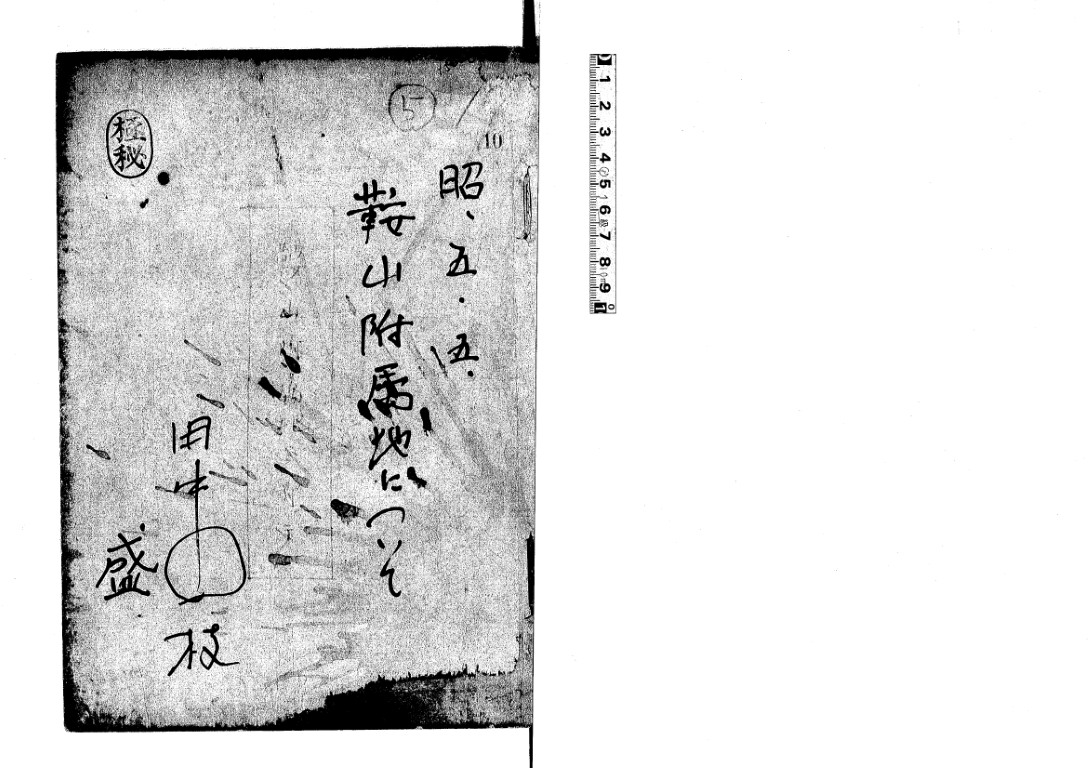 極秘
5
10
昭、五.五.
鞍山附属地について
田中
盛
枝
1 2 3 4 5 6 7 8 9